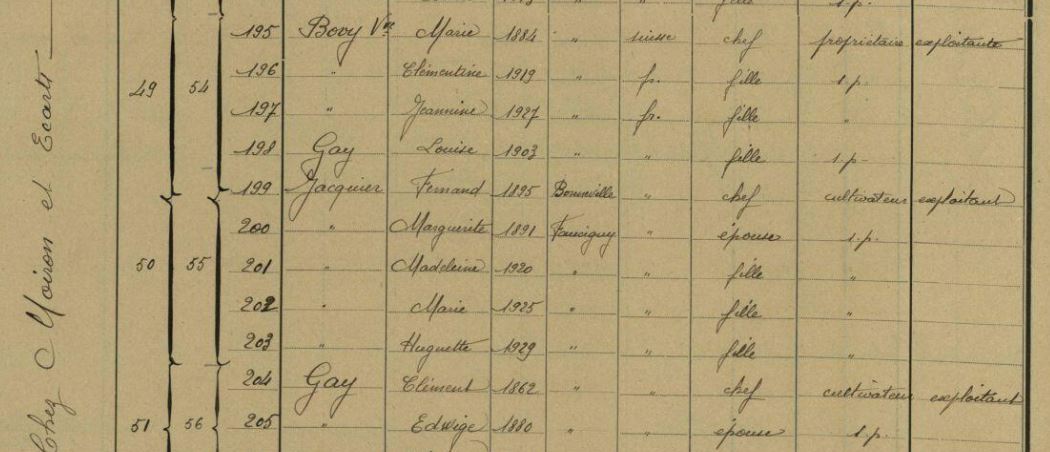 195 Bovy Vve Marie 1884 " suisse chef propriétaire exploitante
49 54 196 " Clémentine 1919 " fr. fille s.p.
197 " Jeannine 1927 " fr. fille "
198 Gay Louise 1903 " " fille s.p.
199 Jacquier Fernand 1895 Bonneville " chef cultivateur exploitant
200 " Marguerite 1891 Faucigny " épouse s.p.
50 55 201 " Madeleine 1920 " " fille "
202 " Marie 1925 " " fille "
203 " Huguette 1929 " " fille "
204 Gay Clément 1862 " " chef cultivateur exploitant
51 56 205 " Edwige 1880 " " épouse s.p.
Chez Moiron et Ecarts